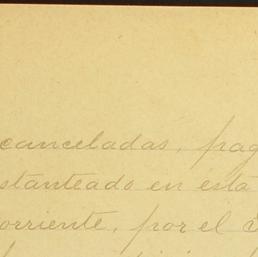 canceladas, pag
stanteado en esta
orriente, por el